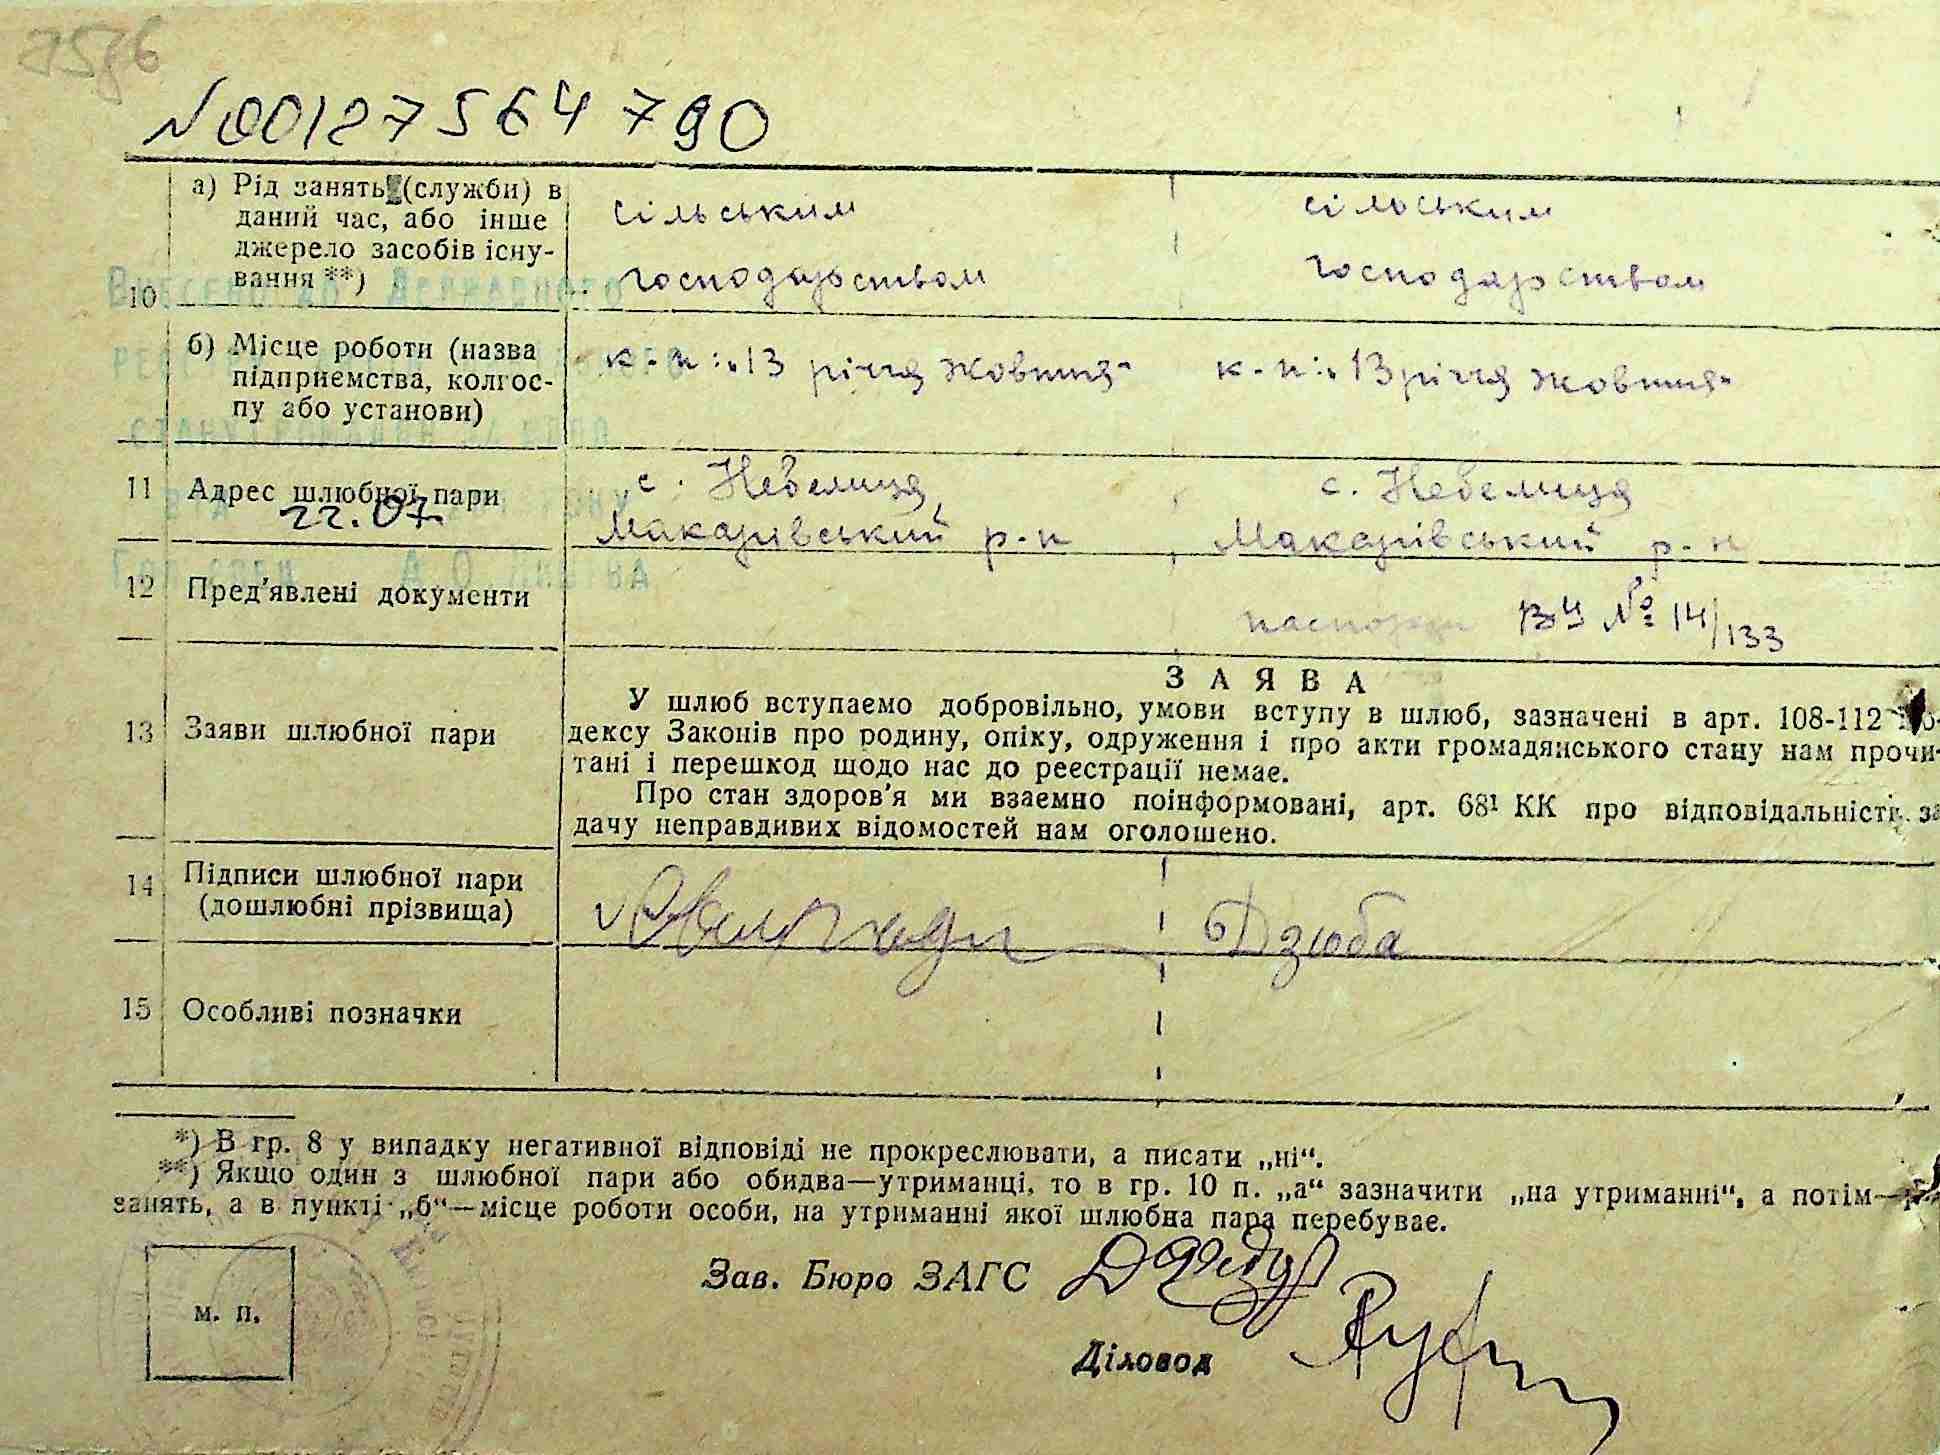 N00127564790
а) Рід занять (службн) в
даний час, або інше
джерело засобів існу-
вання **)
10
сільським
господарством
сільським
господарством
б) Місце роботи (назва
підприємства, колгос-
пу або установи)
к-п: „13 річчя жовтня"
к-п: „13 річчя жовтня"
11 Адрес шлюбної пари
22.07.
с. Небелиця,
Макарівський р-н
с. Небелиця
Макарівський р-н
12 Пред'явлені документи
паспорт ВЧ № 14/133
13 Заяви шлюбної пари
ЗАЯВА
У шлюб вступаємо добровільно, умови вступу в шлюб, зазначені в арт. 108-112
дексу Законів про родину, опіку, одруження і про акти громадянського стану нам прочи-
тані і перешкод щодо нас до реєстрації немає.
Про стан здоров'я ми взаємно поінформовані, арт. 68¹ КК про відповідальність за
дачу неправдивих відомостей нам оголошено.
14 Підписи шлюбної пари
(дошлюбні прізвища)
Дзюба
15 Особливі позначки
*) В гр. 8 у випадку негативної відповіді не прокреслювати, а писати „ні".
**) Якщо один з шлюбної пари або обидва—утриманці, то в гр. 10 п. „а" зазначити „на утриманні", а потім—
занять, а в пункті „б"—місце роботи особи, на утриманні якої шлюбна пара перебуває.
м. п.
Зав. Бюро ЗАГС
Діловод